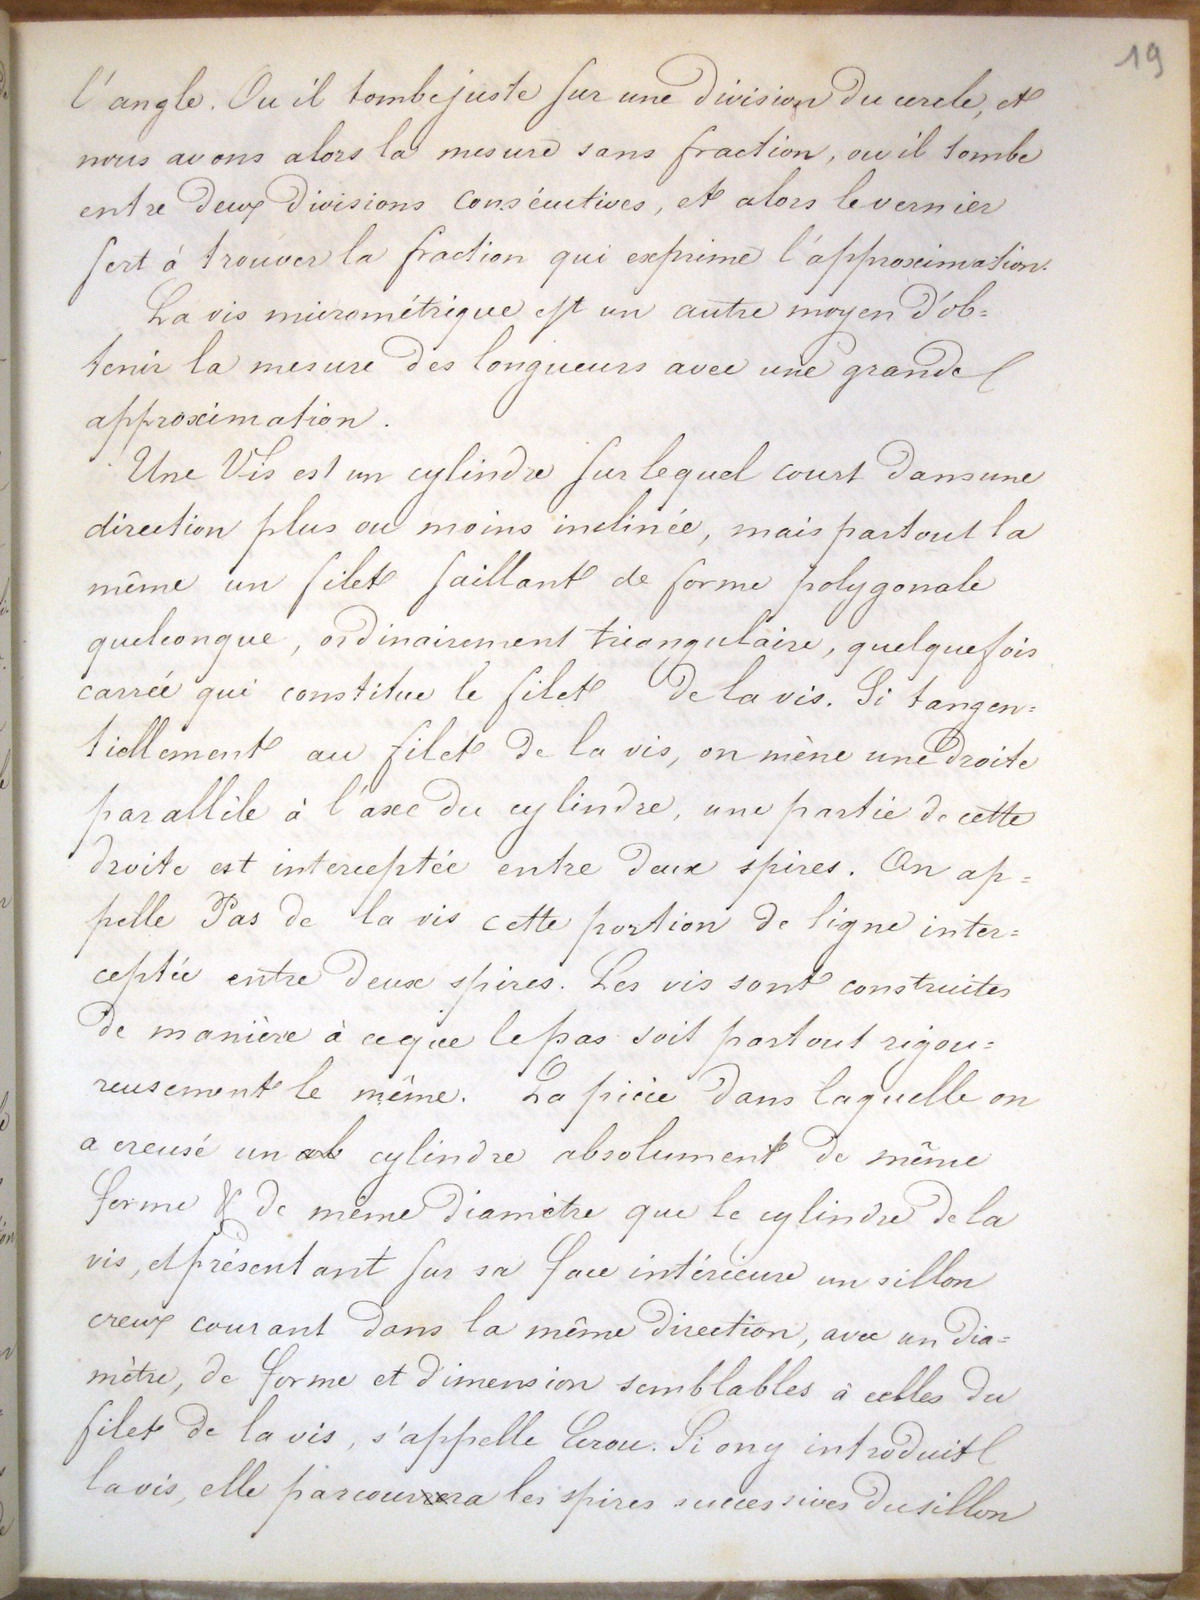 19
l'angle. Ou il tombe juste sur une division du cercle, et
nous avons alors la mesure sans fraction, ou il tombe
entre deux divisions consécutives, et alors le vernier
sert à trouver la fraction qui exprime l'approximation.
La vis micrométrique est un autre moyen d'ob=
tenir la mesure des longueurs avec une grande
approximation.
Une Vis est un cylindre sur lequel court dans une
direction plus ou moins inclinée, mais partout la
même un filet saillant de forme polygonale
quelconque, ordinairement triangulaire, quelquefois
carrée qui constitue le filet de la vis. Si tangen=
tiellement au filet de la vis, on mène une droite
parallèle à l'axe du cylindre, une partie de cette
droite est interceptée entre deux spires. On ap=
pelle Pas de la vis cette portion de ligne inter=
ceptée entre deux spires. Les vis sont construites
de manière à ce que le pas soit partout rigou=
reusement le même. La pièce dans laquelle on
a creusé un cylindre absolument de même
forme & de même diamètre que le cylindre de la
vis, et présentant sur sa face intérieure un sillon
creux courant dans la même direction, avec un dia=
mètre, de forme et dimension semblables à celles du
filet de la vis, s'appelle Ecrou. Si on y introduit
la vis, elle parcourra les spires successives du sillon